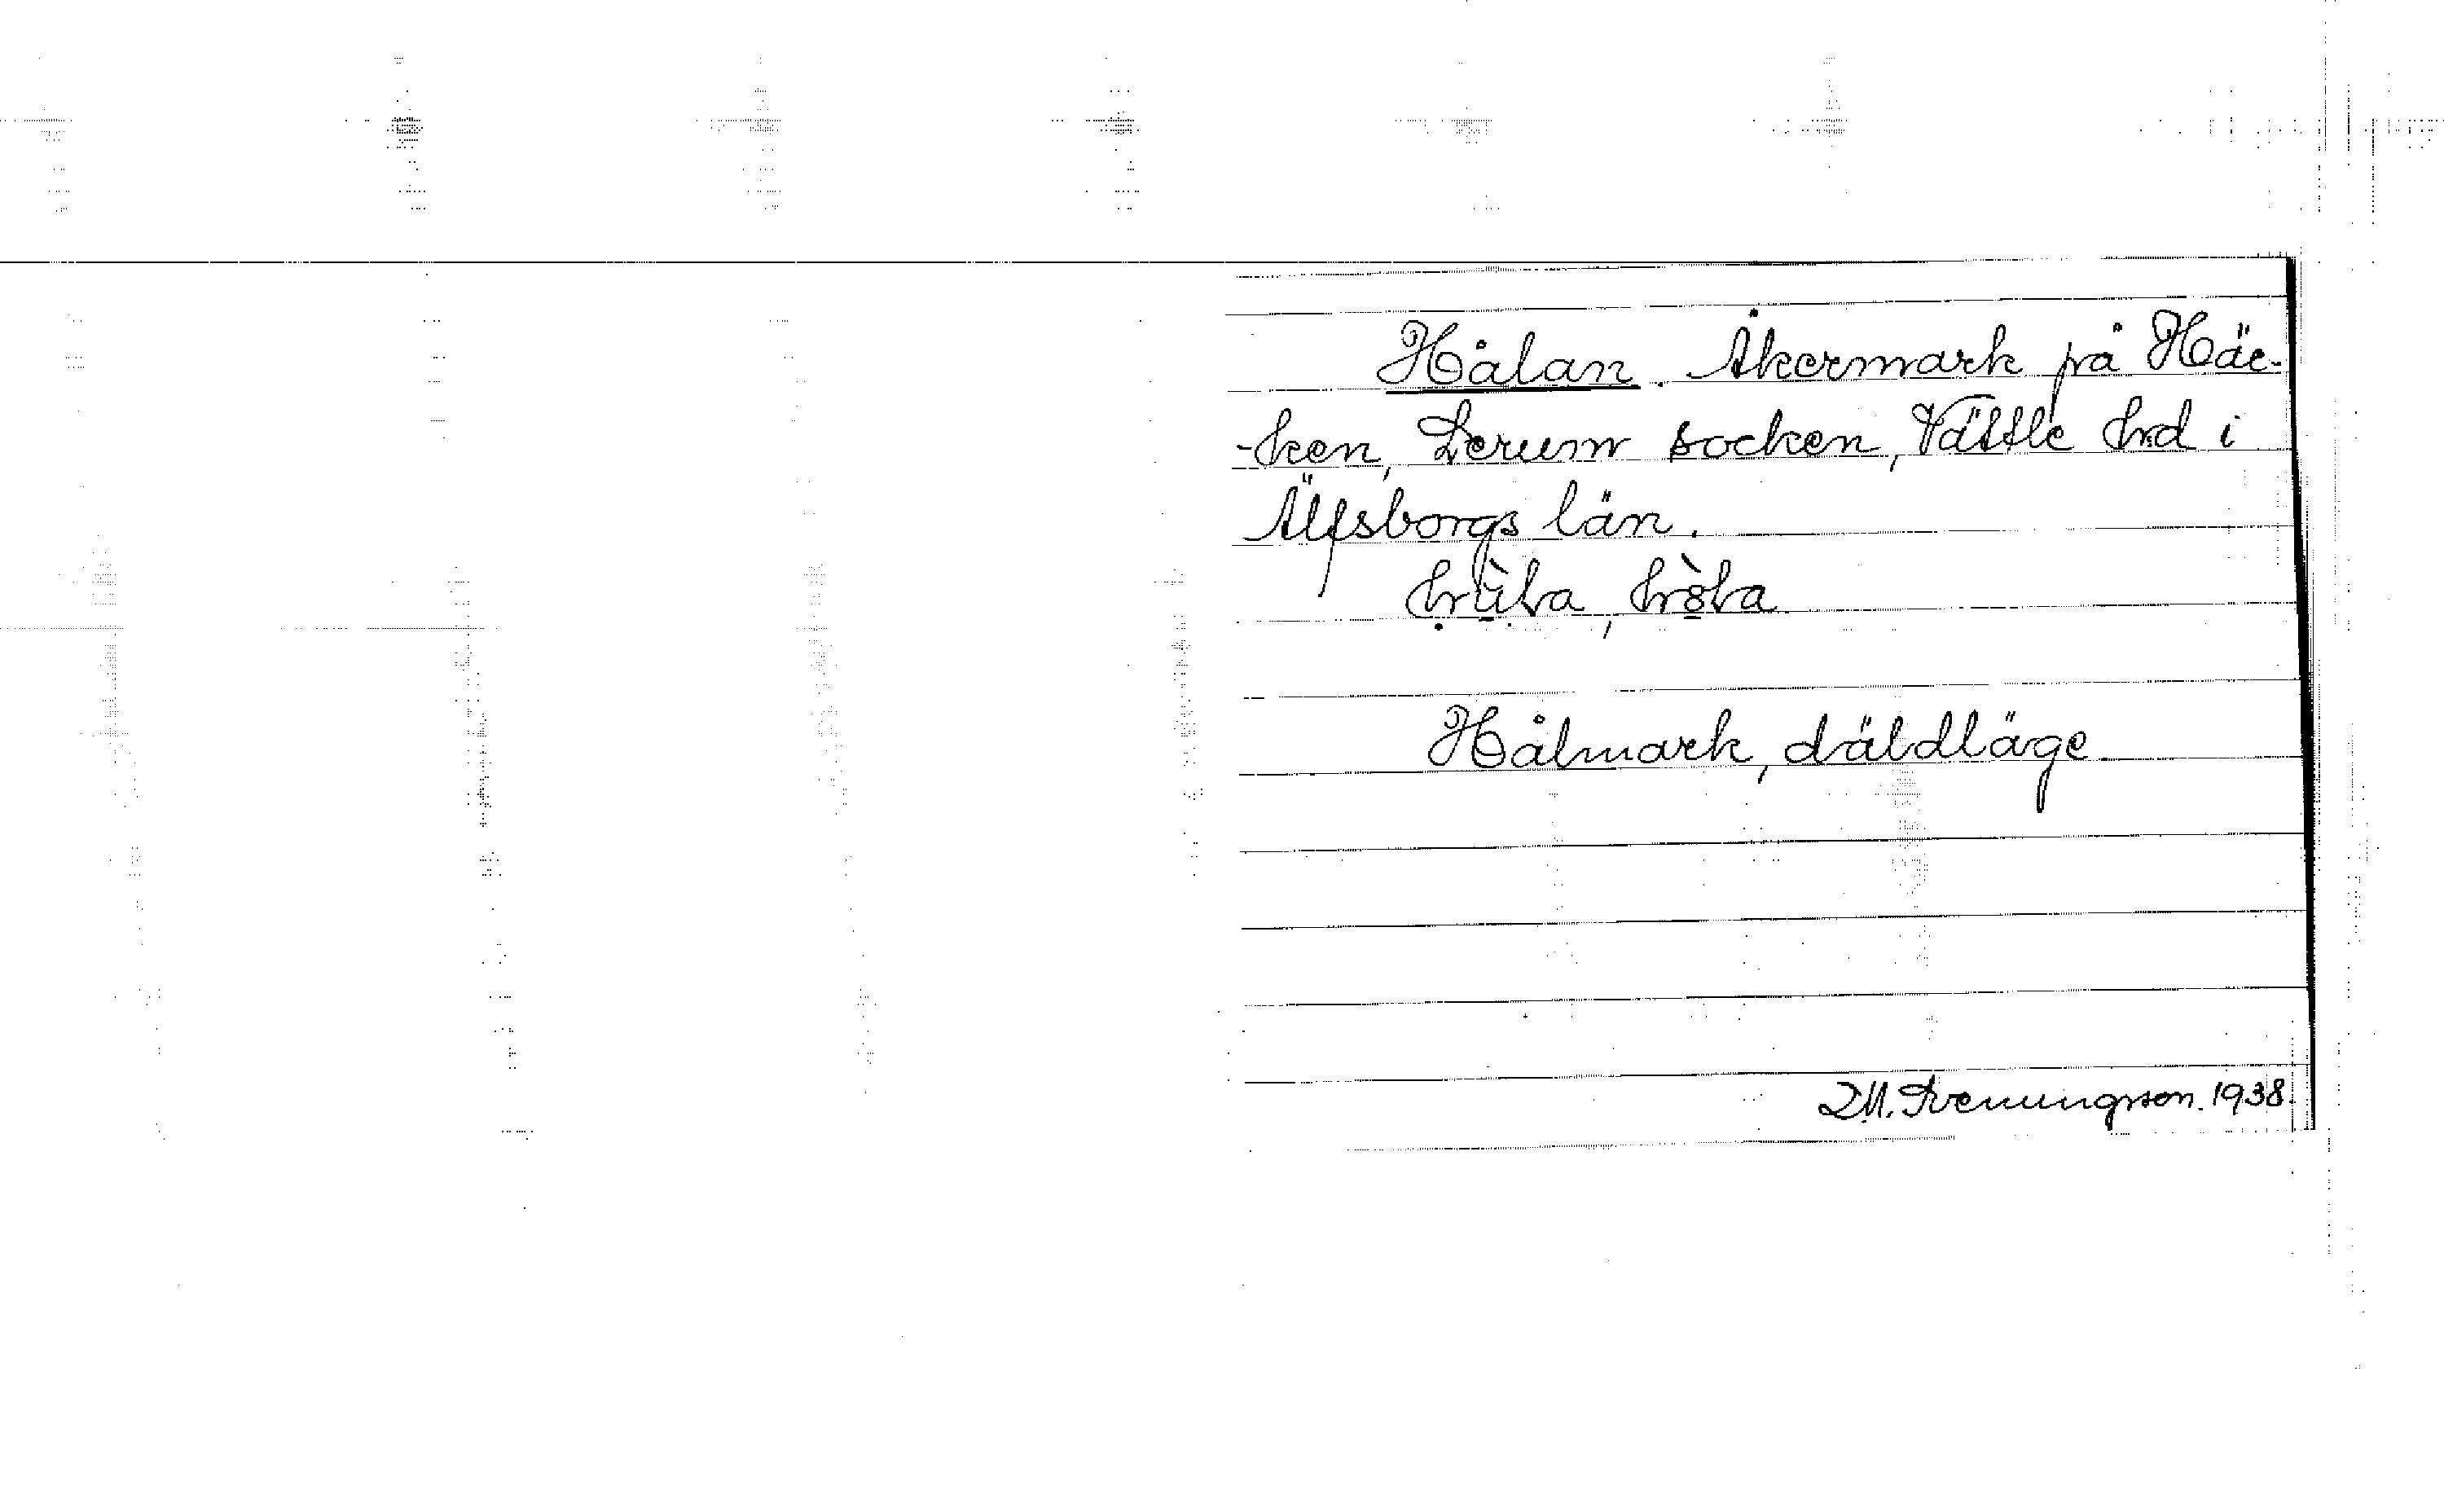 Hålan. Åkermark på Häc-
-ken, Lerum socken, Vättle hrd i
Älfsborgs län.
Hålmark, däldläge
D.M. Svenungsson. 1938.